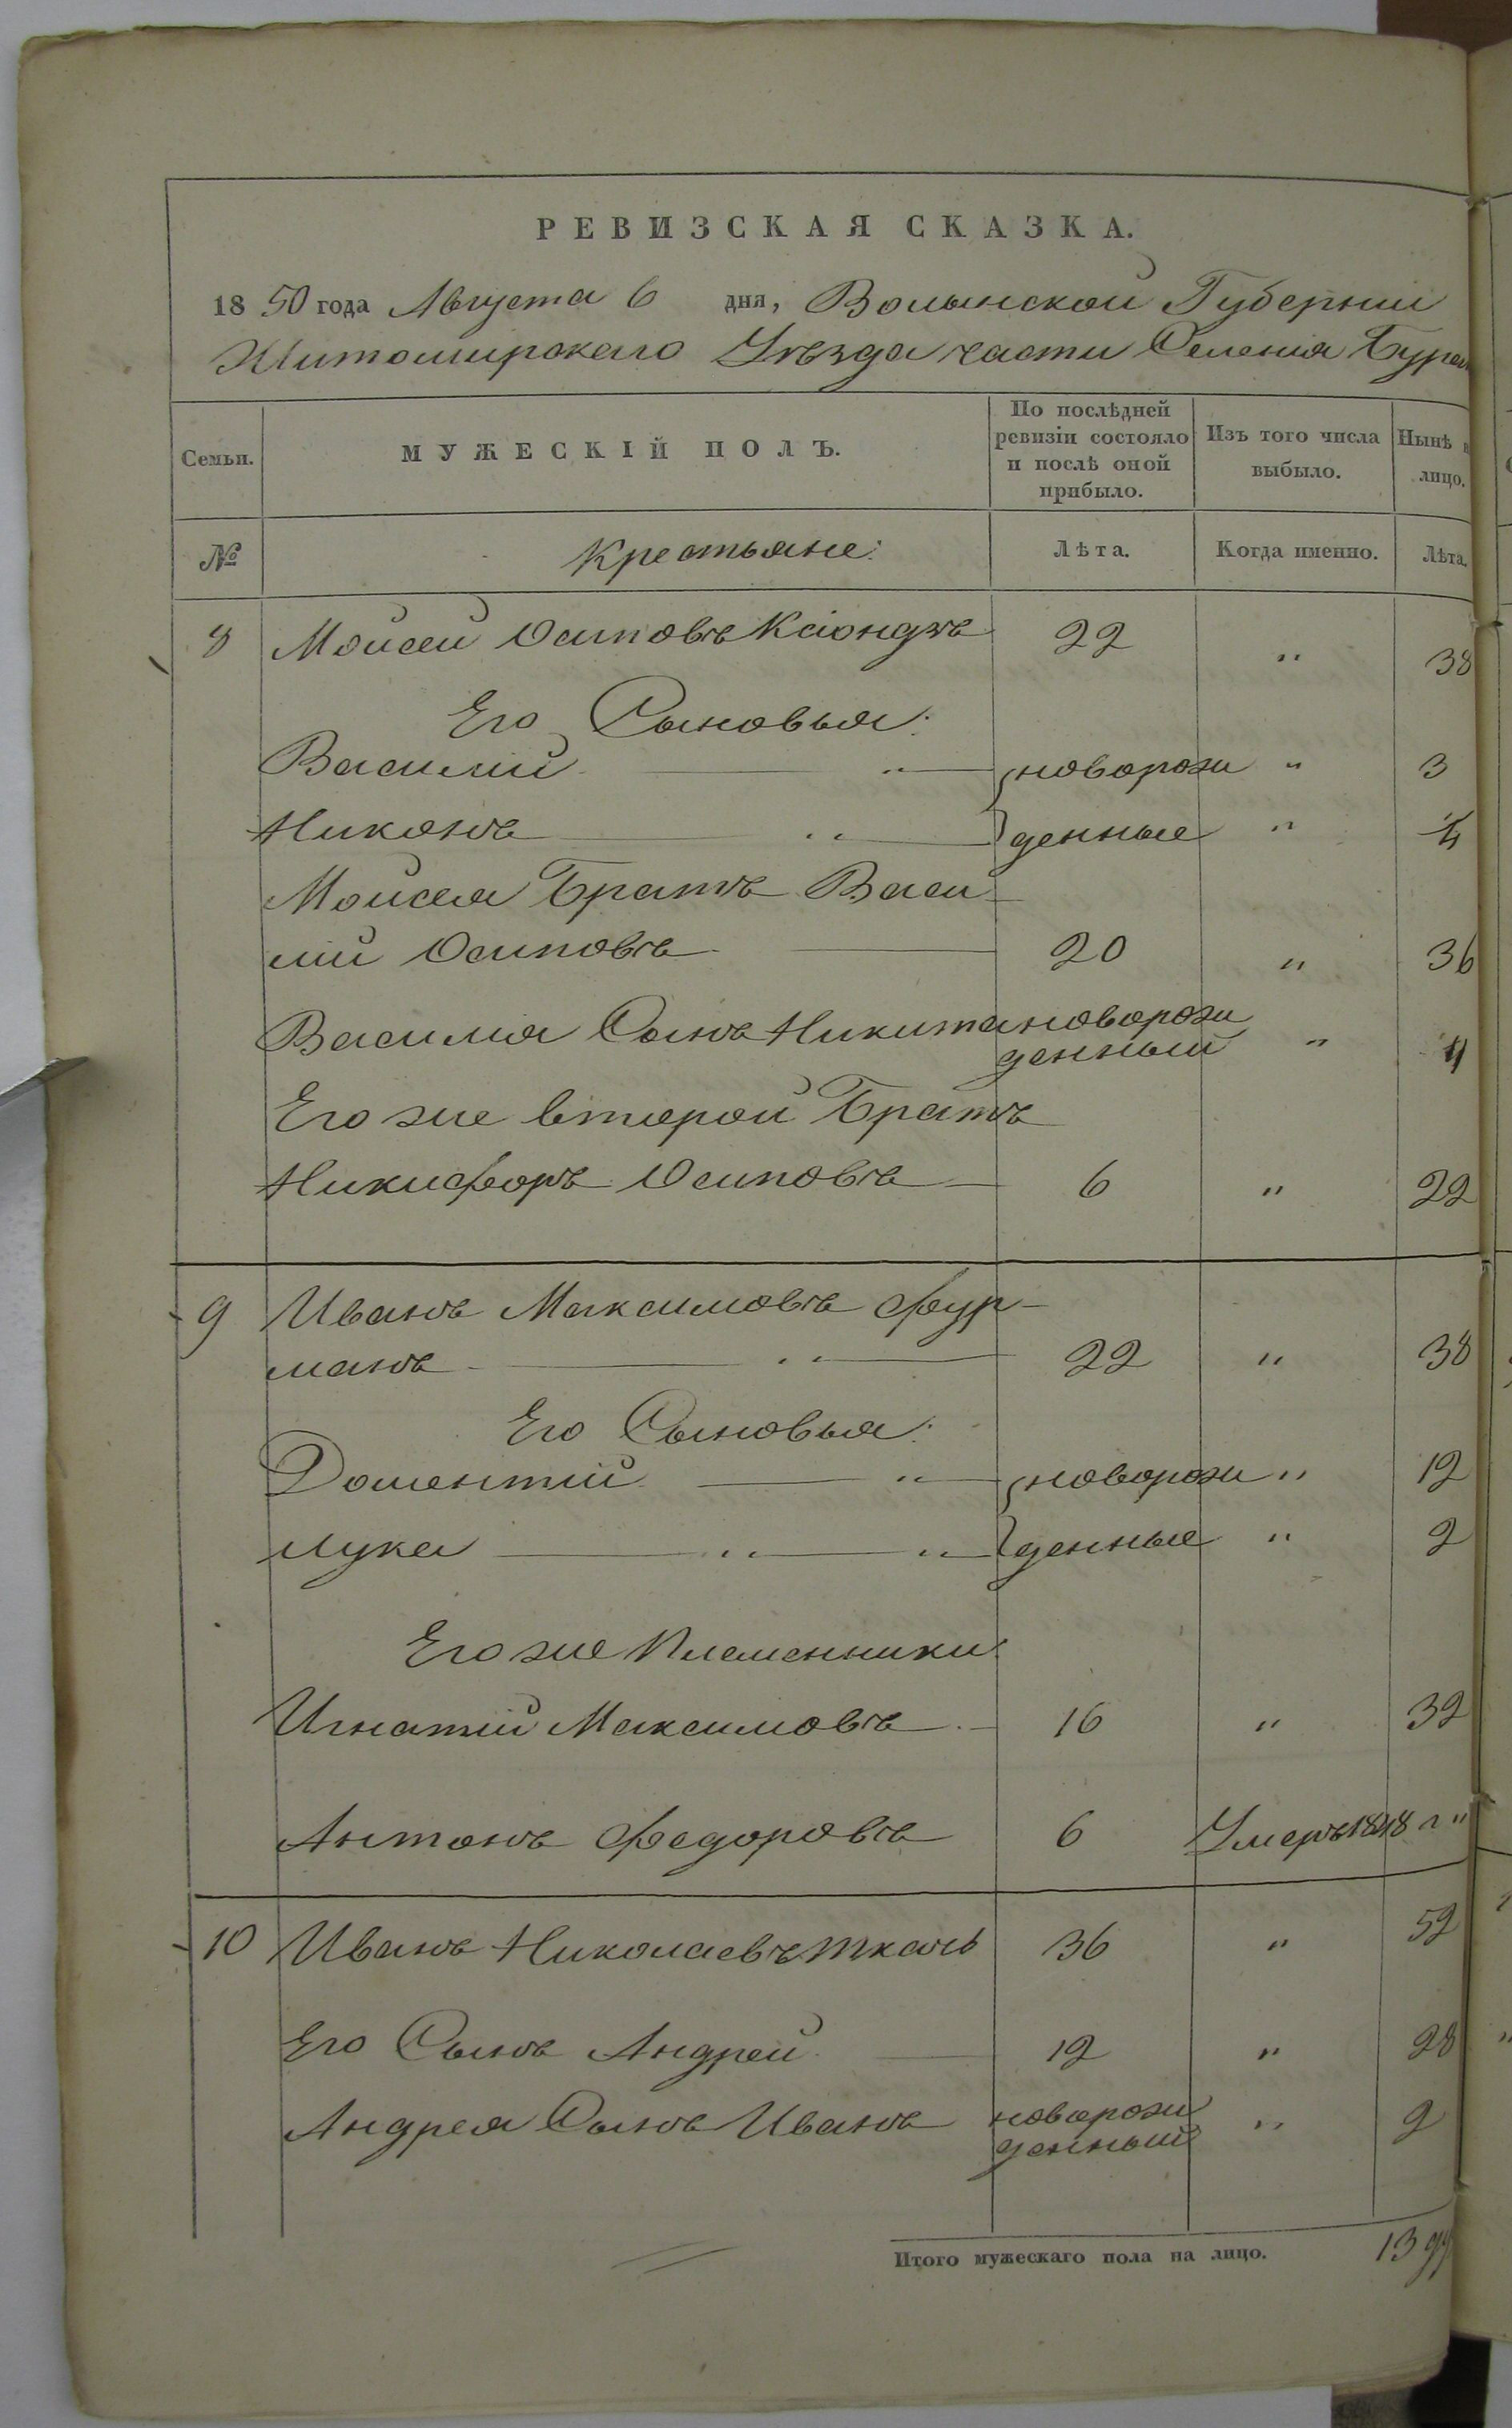 РЕВИЗСКАЯ СКАЗКА.
1850 года Августа 6 дня, Волынской Губерніи
Житомирскаго Уѣзда части Селенія
Семьи. МУЖЕСКІЙ ПОЛЪ. По послѣдней ревизіи состояло и послѣ оной прибыло. Изъ того числа выбыло. Нынѣ лицо.
№ Крестьяне: Лѣта. Когда именно. Лѣта.
8 Мойсей Осиповъ Ксіондзъ 22 " 38
Его Сыновья:
Василий " новорож " 3
Никонъ " денные "
Мойсея Братъ Васи-
лий Осиповъ 20 " 36
Василия Сынъ Никита новорож
денный " 4
Его же второй Братъ
Никифоръ Осиповъ 6 " 22
9 Иванъ Максимовъ Фур-
манъ " 22 " 38
Его Сыновья:
Доментий " новорож " 12
Лука " " денные " 2
Его же Племенники
Игнатий Максимовъ 16 " 32
Антонъ Федоровъ 6 Умеръ 1848 г "
10 Иванъ Николаевъ Ткачъ 36 " 52
Его Сынъ Андрей 12 " 28
Андрея Сынъ Иванъ новорож
денный " 2
Итого мужескаго пола на лицо. 13